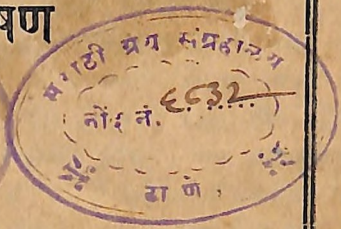 षण
मराठी ग्रंथ संग्रहालय
नोंद नं. ६८३२
ठाणें.